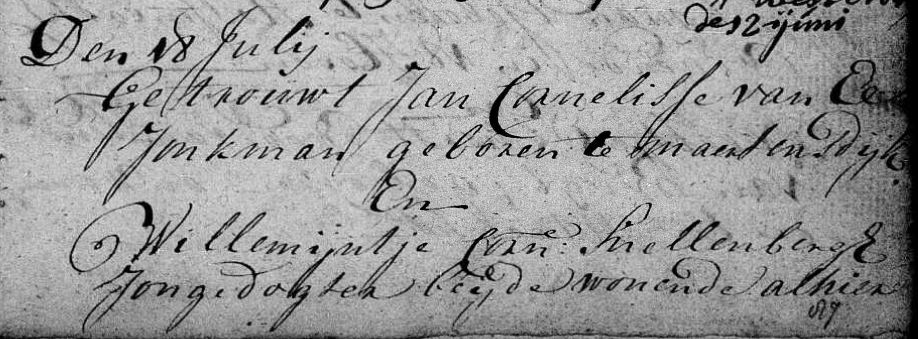 des 12 Juni
Den 18 Julij
Getrouwt Jan Cornelisse van
Jonkman geboren te Maertensdijk
En
Willemijntje Corn: Snellenberg
Jongedogter beijde wonende alhier